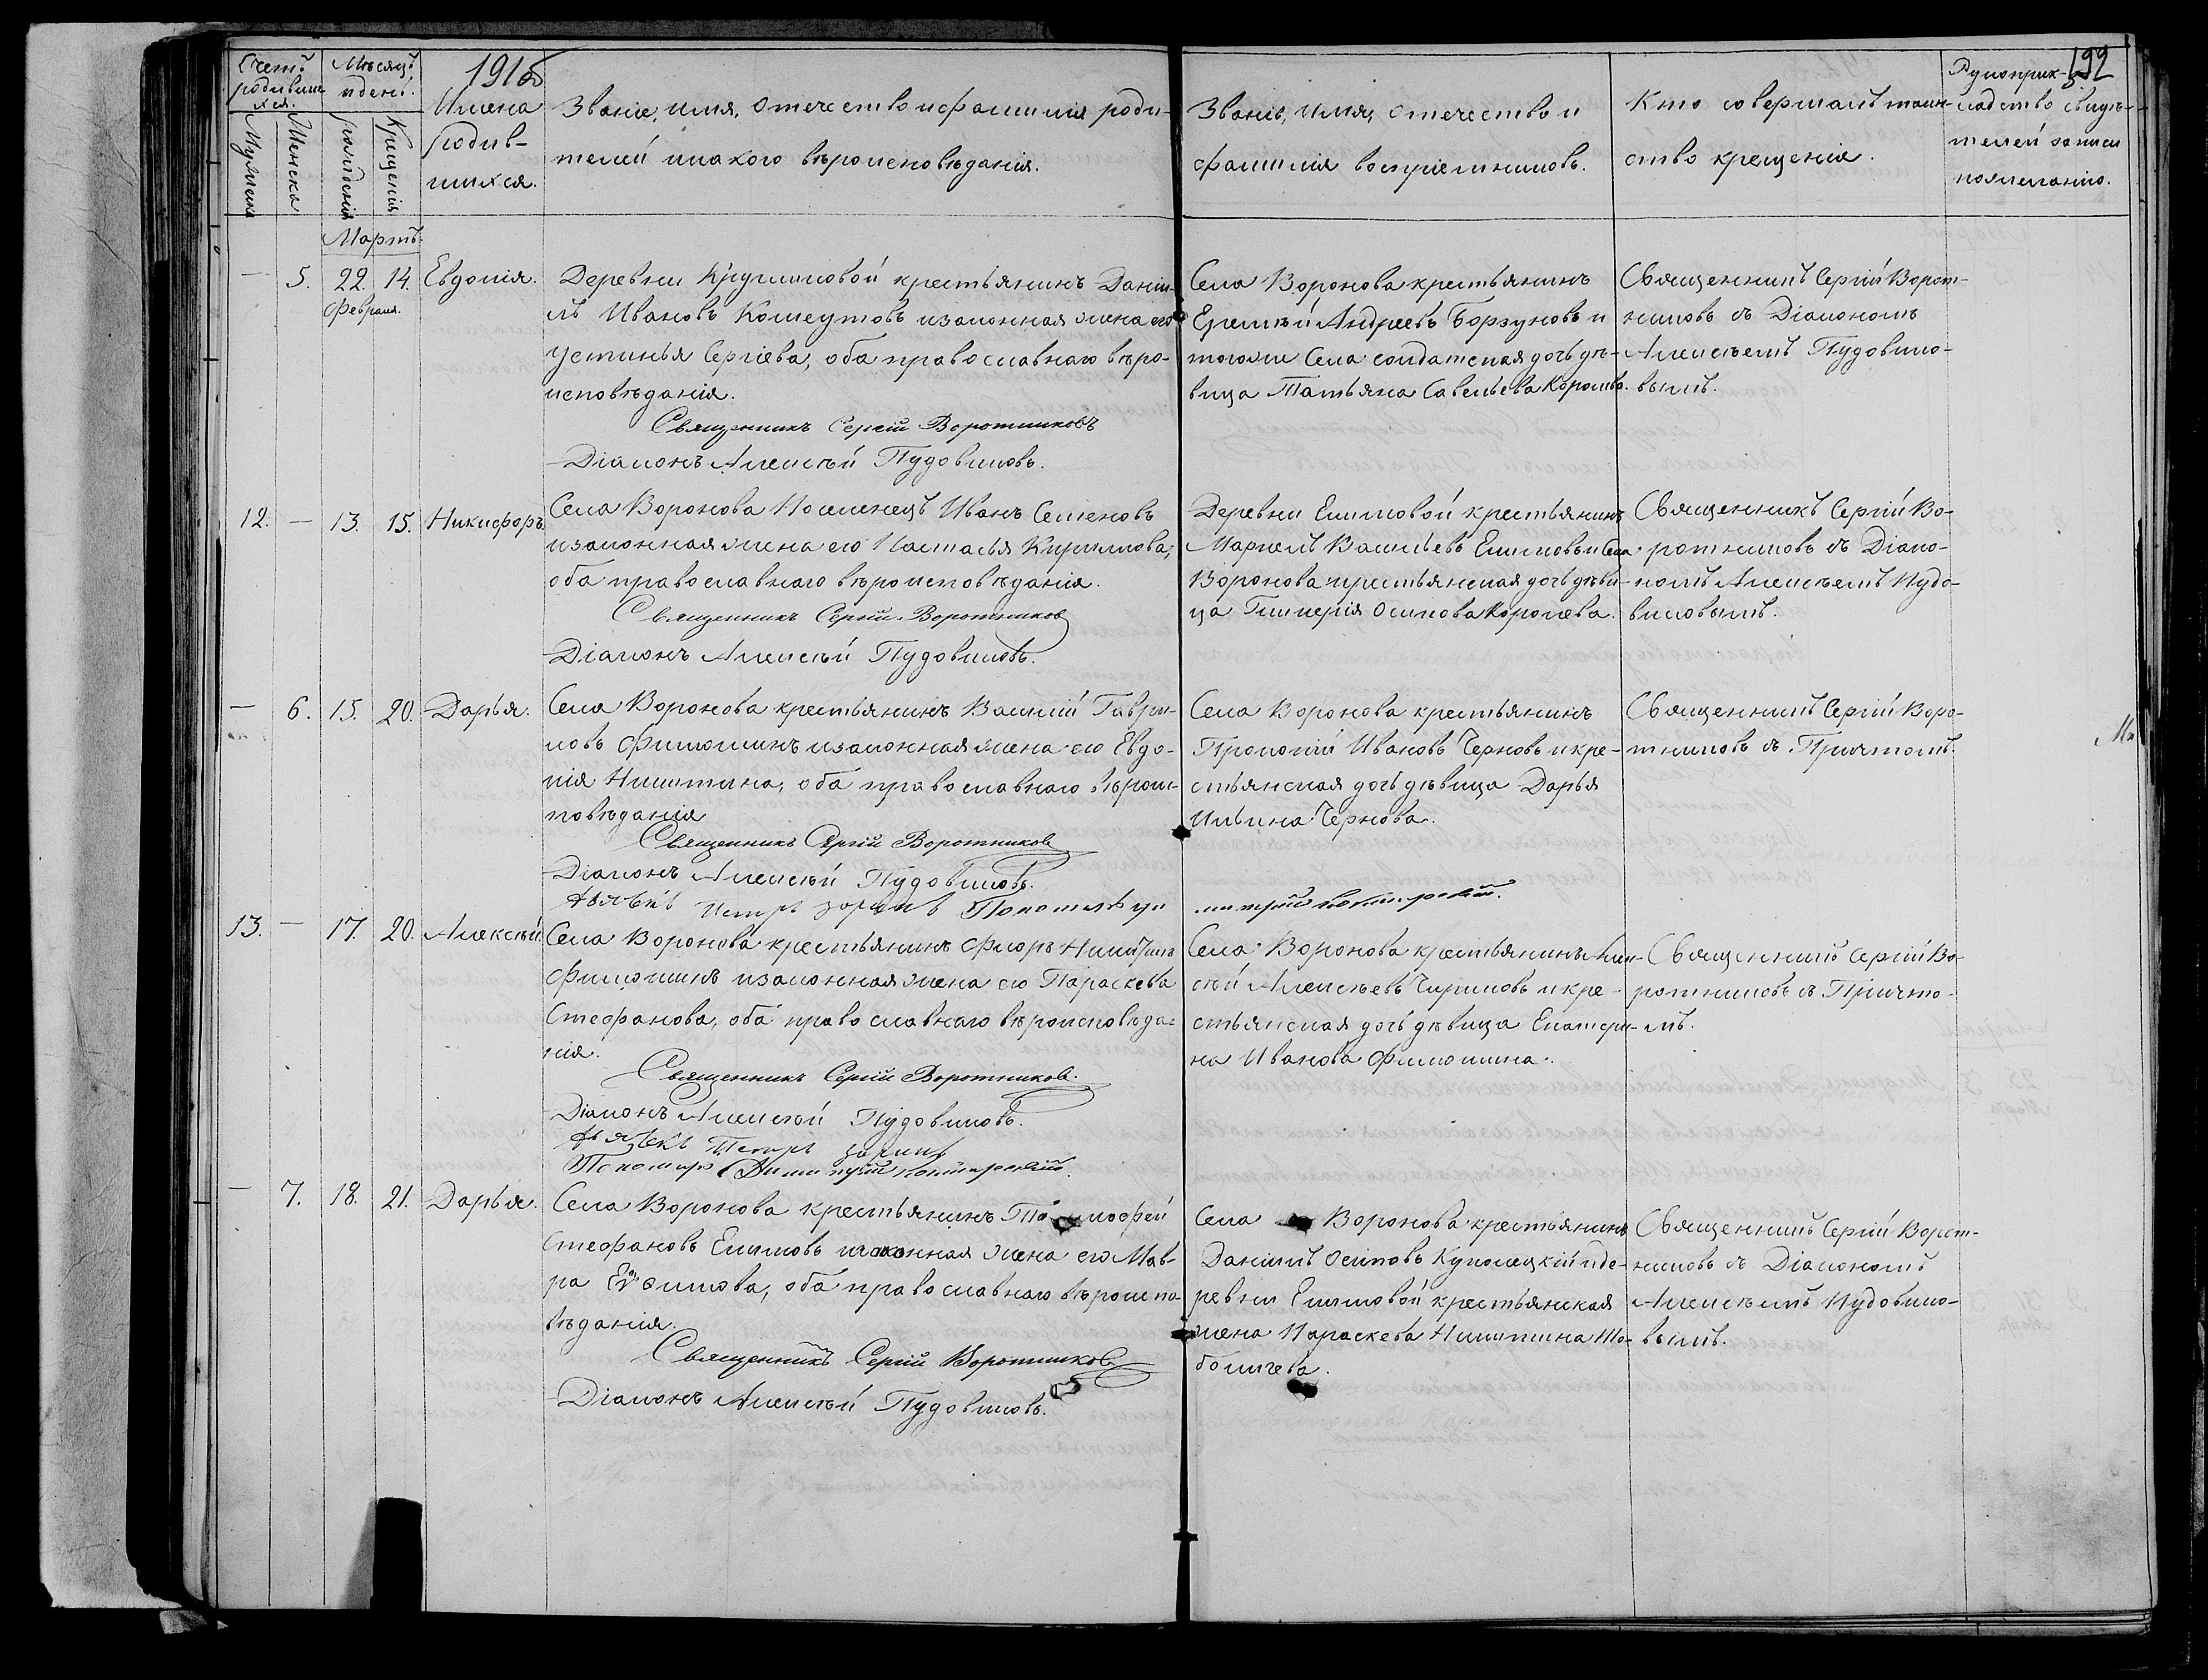 192
Счетъ родившихся.
Мужеска
Женска
Мѣсяцъ и день.
рожденія
Крещенія
Имена
родив-
шихся.
Званіе, имя, отечество и фамилія роди-
телей и какого вѣроисповѣданія.
Званіе, имя, отечество и
фамилія воспріемниковъ.
Кто совершалъ таин-
ство крещенія.
Рукоприк-
ладство свидѣ-
телей записи
по желанію.
Мартъ.
—
5.
22. Февраля.
14.
Евдокія.
Деревни крестьянинъ Дани-
лъ Ивановъ и законная жена его
Устинья Сергіева, оба православнаго вѣро-
исповѣданія.
Священникъ Сергій Воротниковъ
Діаконъ Алексѣй Пудовиковъ.
Села Воронова крестьянинъ
Еремѣй Андреевъ Борзуновъ и
тогоже Села солдатская дочь дѣ-
вица Татьяна Савельева
Священникъ Сергій Ворот-
никовъ съ Діакономъ
Алексѣемъ Пудовико-
вымъ.
12.
—
13.
15.
Никифоръ.
Села Воронова Поселенецъ Иванъ Семеновъ
и законная жена его Настасья Кирилова,
оба православнаго вѣроисповѣданія.
Священникъ Сергій Воротников
Діаконъ Алексѣй Пудовиковъ.
Деревни Екимовой крестьянинъ
Маркелъ Васильевъ Екимовъ и Села
Воронова крестьянская дочь дѣви-
ца Гликерія Осипова Королева.
Священникъ Сергій Во-
ротниковъ съ Діако-
номъ Алексѣемъ Пудо-
виковымъ.
—
6.
15.
20.
Дарья.
Села Воронова крестьянинъ Василій Гаври-
ловъ Филошинъ и законная жена его Евдо-
кія Никитина, оба православнаго вѣроис-
повѣданія
Священникъ Сергій Воротников
Діаконъ Алексѣй Пудовиковъ.
Дьячекъ Петръ Зоринъ Пономарь
Села Воронова крестьянинъ
Прокопій Ивановъ Черновъ и кре-
стьянская дочь дѣвица Дарья
Ильина Чернова.
Священникъ Сергій Воро-
тниковъ съ Причтомъ.
13.
—
17.
20.
Алексѣй.
Села Воронова крестьянинъ Флоръ Никитинъ
Филошинъ и законная жена его Параскева
Стефанова, оба православнаго вѣроисповѣда-
нія.
Священникъ Сергій Воротников.
Діаконъ Алексѣй Пудовиковъ.
Дьячекъ Петръ Зоринъ
Пономарь Димитрій
Села Воронова крестьянинъ Алек-
сѣй Алексѣевъ Чириковъ и кре-
стьянская дочь дѣвица Екатери-
на Иванова Филошина.
Священникъ Сергій Во-
ротниковъ съ Причто-
мъ.
—
7.
18.
21.
Дарья.
Села Воронова крестьянинъ Тимофей
Стефановъ Екимовъ и законная жена его Мав-
ра оба православнаго вѣроиспо-
вѣданія.
Священникъ Сергій Воротников
Діаконъ Алексѣй Пудовиковъ.
Села Воронова крестьянинъ
Данилъ Осиповъ и де-
ревни Екимовой крестьянская
жена Параскева Никитина То-
болшева.
Священникъ Сергій Ворот-
никовъ съ Діакономъ
Алексѣемъ Пудовико-
вымъ.